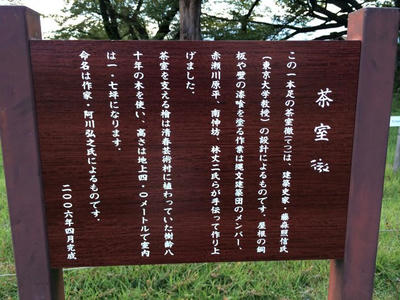 茶室 徹
この一本足の茶室徹(てつ)は、建築史家・藤森照信氏
(東京大学教授)の設計によるものです。屋根の銅
板や壁の漆喰を塗る作業は縄文建築団のメンバー、
赤瀬川原平、南伸坊、林丈二氏らが手伝って作り上
げました。
茶室を支える檜は清春芸術村に植わっていた樹齢八
十年の木を使い、高さは地上四・〇メートルで室内
は一・七坪になります。
命名は作家・阿川弘之氏によるものです。
二〇〇六年四月完成